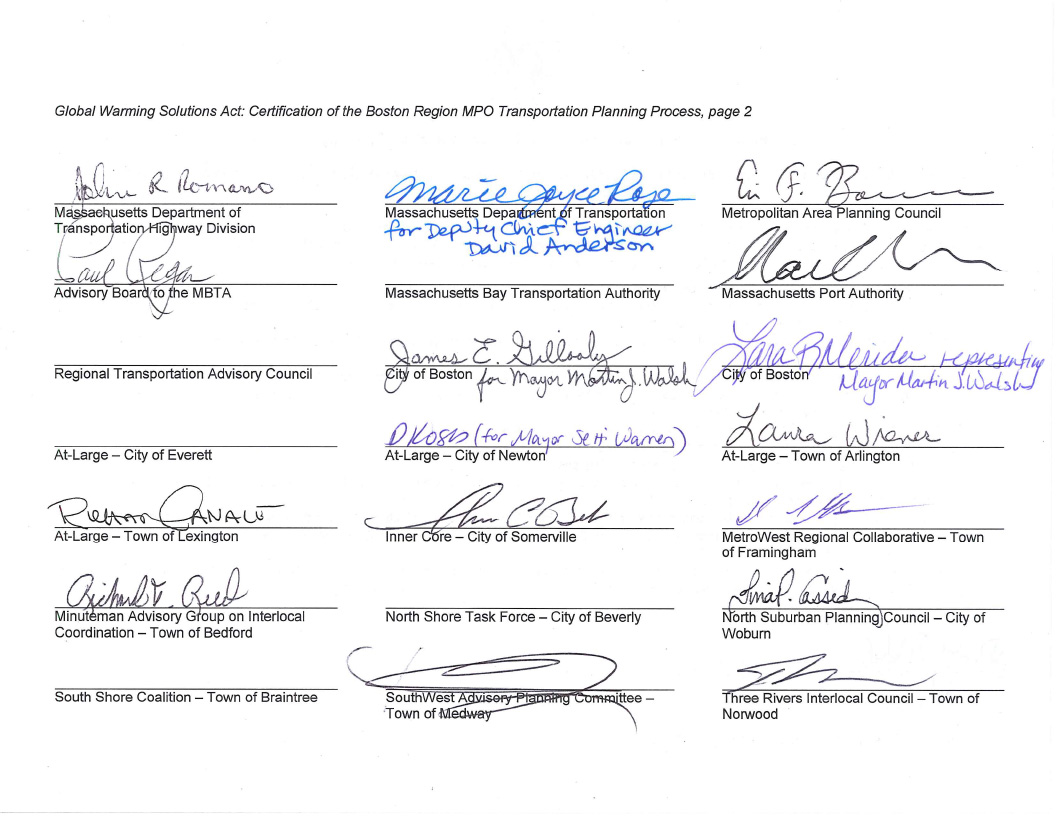 Global Warming Solutions Act: Certification of the Boston Region MPO Transportation Planning Process, page 2
John R Romano
Massachusetts Department of
Transportation Highway Division
Marie Joyce Rose
Massachusetts Department of Transportation
for Deputy Chief Engineer
David Anderson
Metropolitan Area Planning Council
Paul Regan
Advisory Board to the MBTA
Massachusetts Bay Transportation Authority
Massachusetts Port Authority
Regional Transportation Advisory Council
James E. Gillooly
City of Boston
for Mayor Martin J. Walsh
representing
City of Boston
Mayor Martin J. Walsh
At-Large – City of Everett
(for Mayor Setti Warren)
At-Large – City of Newton
Laura Wiener
At-Large – Town of Arlington
Canale
At-Large – Town of Lexington
Inner Core – City of Somerville
MetroWest Regional Collaborative – Town
of Framingham
Richard Reed
Minuteman Advisory Group on Interlocal
Coordination – Town of Bedford
North Shore Task Force – City of Beverly
North Suburban Planning Council – City of
Woburn
South Shore Coalition – Town of Braintree
SouthWest Advisory Planning Committee –
Town of Medway
Three Rivers Interlocal Council – Town of
Norwood